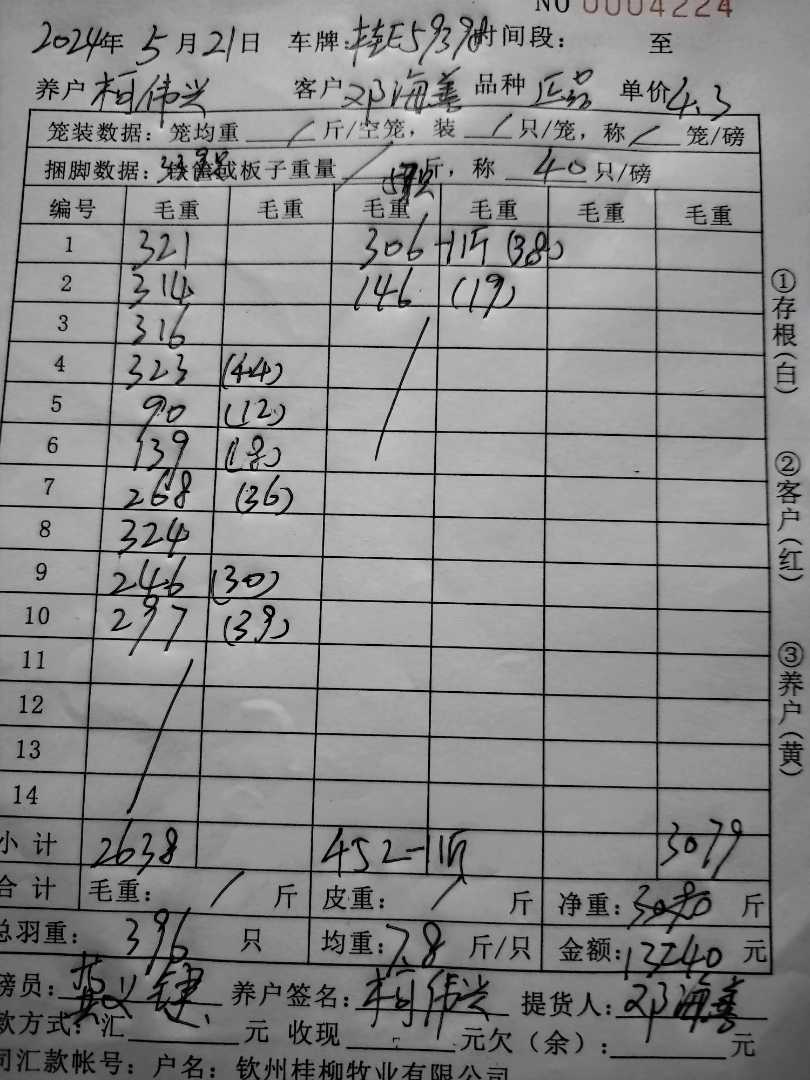 NO 0004224
2024年 5月21日 车牌:桂E59398 时间段: 至
养户 柯伟兴 客户 邓海善 品种 正品 单价 4.3
笼装数据: 笼均重 / 斤/空笼, 装 / 只/笼, 称 / 笼/磅
捆脚数据: 或板子重量 / 斤, 称 40 只/磅
编号 毛重 毛重 毛重 毛重 毛重 毛重
1 321 306 -1斤 (38)
2 314 146 (19)
3 316 /
4 323 (44)
5 90 (12)
6 139 (18)
7 268 (36)
8 324
9 246 (30)
10 297 (39)
11 /
12
13
14
小计 2638 452-1斤 3079
合计 毛重: / 斤 皮重: / 斤 净重: 斤
总羽重: 396 只 均重: 7.8 斤/只 金额: 13240 元
磅员: 养户签名: 柯伟兴 提货人: 邓海善
款方式: 汇 元 收现 元欠(余): 元
司汇款帐号: 户名: 钦州桂柳牧业有限公司
①存根(白)
②客户(红)
③养户(黄)